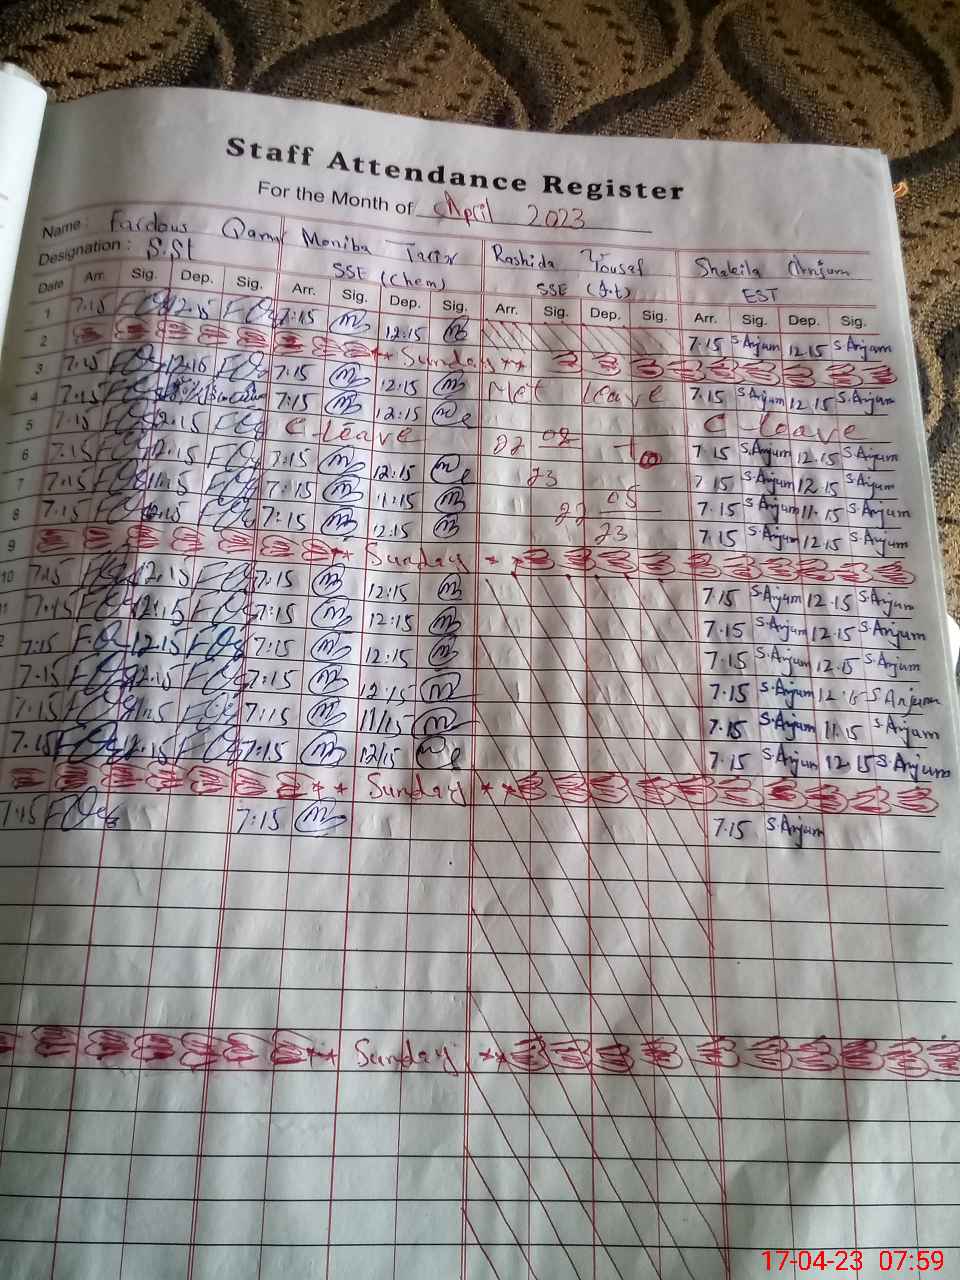 Staff Attendance Register
For the Month of April 2023
Name: Fardous Moniba Tariq Rashida Yousaf Shakila Anjum
Designation: S.St SSE (Chem) SSE EST
Date Arr. Sig. Dep. Sig. Arr. Sig. Dep. Sig. Arr. Sig. Dep. Sig. Arr. Sig. Dep. Sig.
1 7.15 12.15 7:15 12:15 7.15 S.Anjum 12.15 S.Anjum
2 ** Sunday **
3 7.15 12.15 7:15 12:15 Met leave 7.15 S.Anjum 12.15 S.Anjum
4 7.15 7:15 12:15 C leave
5 7.15 12.15 C leave 02 02 To 7.15 S.Anjum 12.15 S.Anjum
6 7.15 12.15 7:15 12:15 23 7.15 S.Anjum 12.15 S.Anjum
7 7.15 11.15 7:15 11:15 05 7.15 S.Anjum 11.15 S.Anjum
8 7.15 12.15 7:15 12:15 23 7.15 S.Anjum 12.15 S.Anjum
9 ** Sunday **
10 7.15 12.15 7:15 12:15 7.15 S.Anjum 12.15 S.Anjum
7.15 12.15 7:15 12:15 7.15 S.Anjum 12.15 S.Anjum
7:15 12.15 7:15 12:15 7.15 S.Anjum 12.15 S.Anjum
7.15 12.15 7:15 12:15 7.15 S.Anjum 12.15 S.Anjum
7.15 11.15 7:15 11/15 7.15 S.Anjum 11.15 S.Anjum
7.15 12.15 7:15 12/15 7.15 S.Anjum 12.15 S.Anjum
** Sunday **
7:15 7:15 7.15 S.Anjum
** Sunday **
17-04-23 07:59